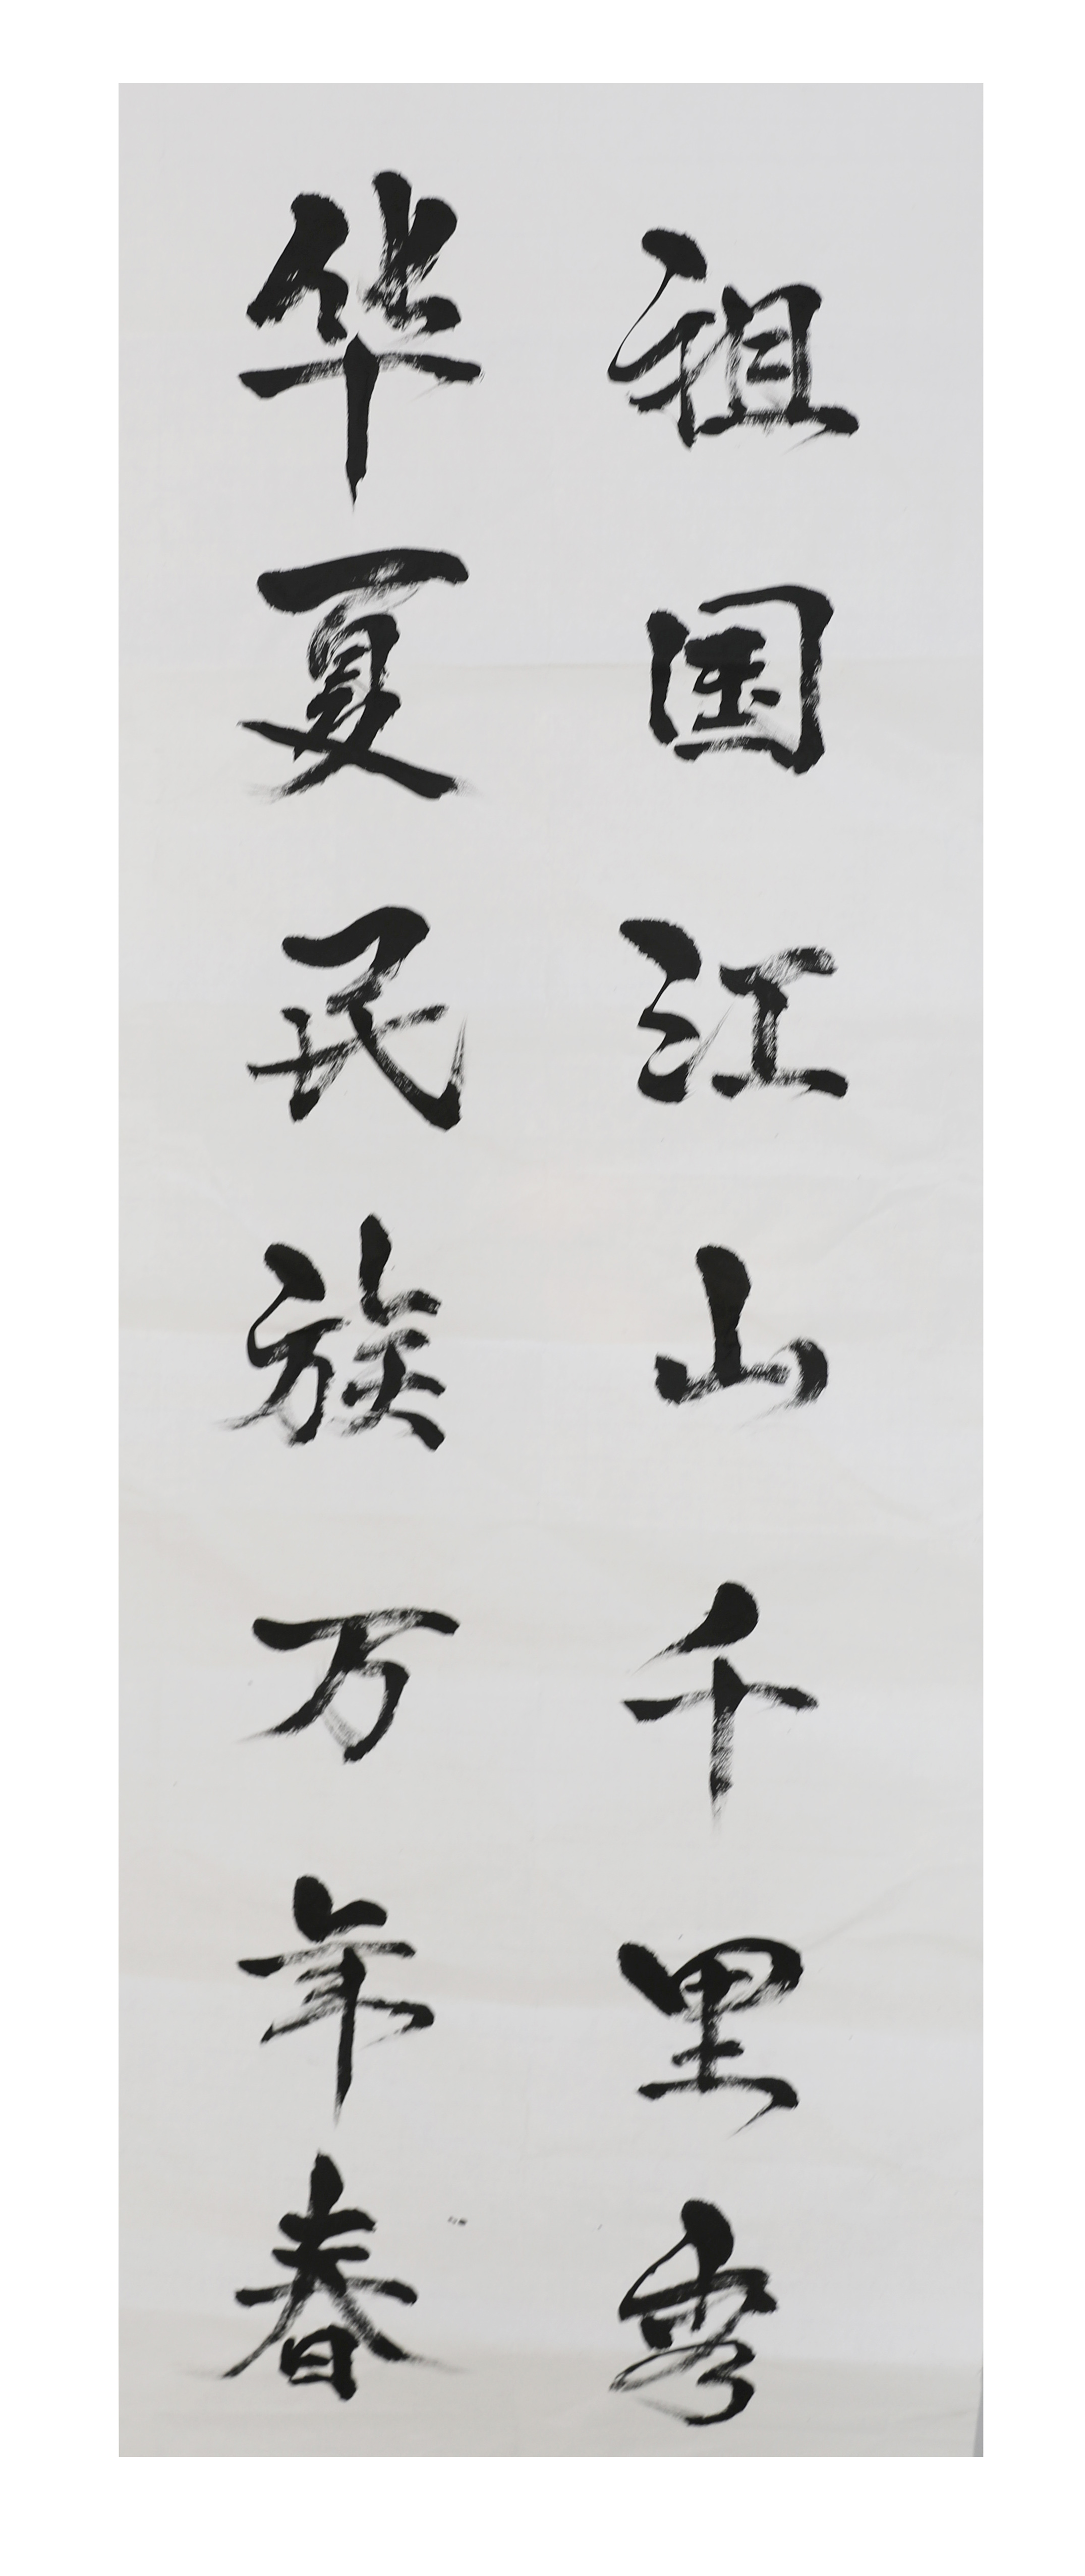 祖国江山千里秀
华夏民族万年春